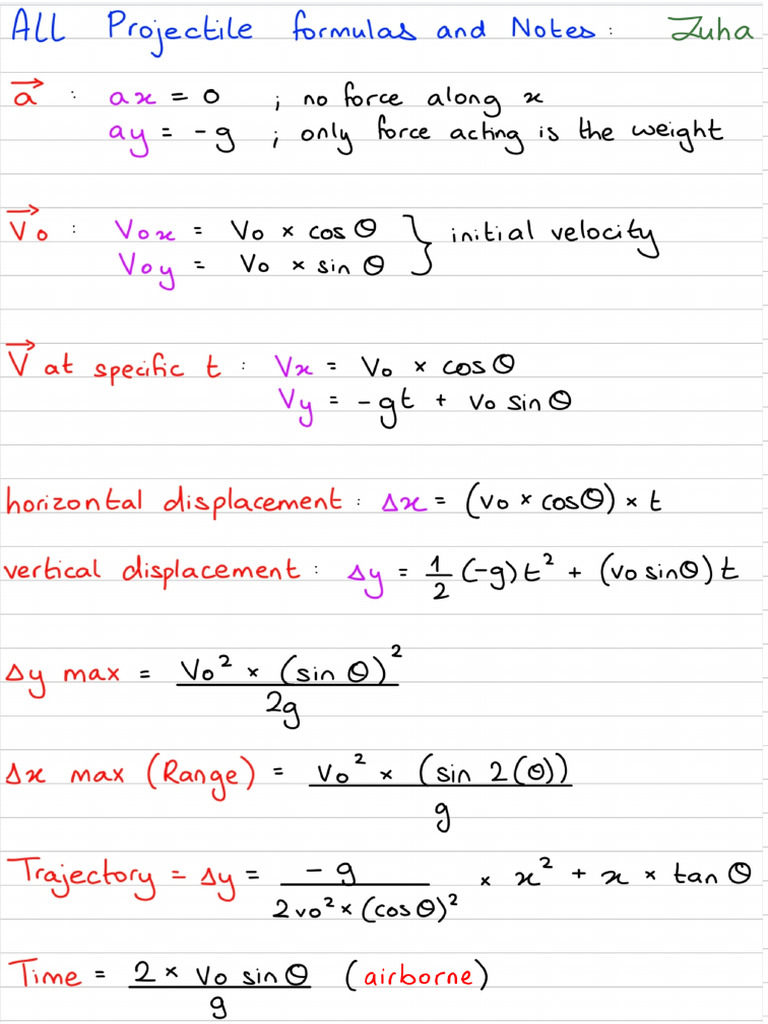 ALL Projectile formulas and Notes: Zuha
a⃗ : ax = 0 ; no force along x
ay = -g ; only force acting is the weight
V⃗o : Vox = Vo × cos θ } initial velocity
Voy = Vo × sin θ
V⃗ at specific t : Vx = Vo × cos θ
Vy = -gt + vo sin θ
horizontal displacement : Δx = (vo × cos θ) × t
vertical displacement : Δy = 1/2 (-g) t² + (vo sin θ) t
Δy max = Vo² × (sin θ)² / 2g
Δx max (Range) = Vo² × (sin 2(θ)) / g
Trajectory = Δy = -g / 2vo² × (cos θ)² × x² + x × tan θ
Time = 2 × Vo sin θ / g (airborne)